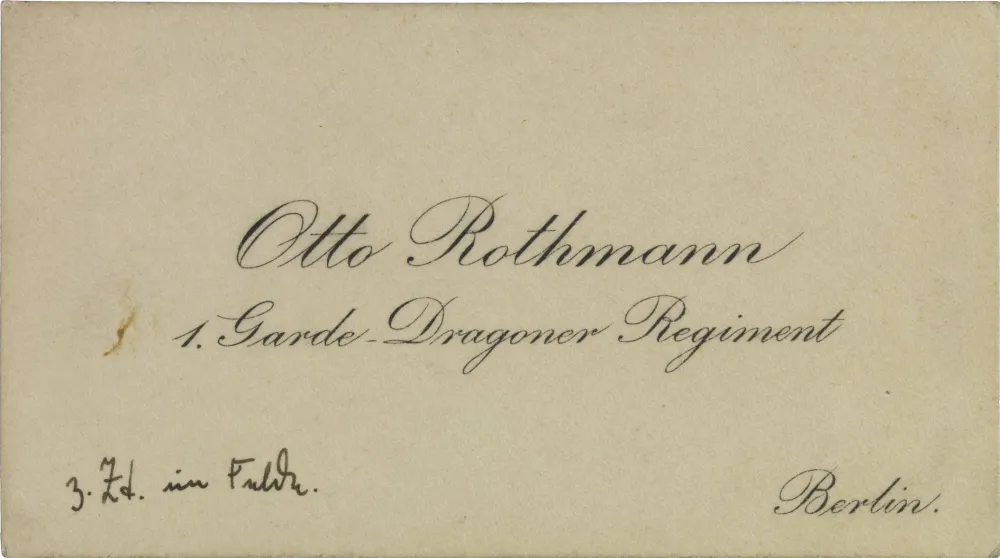 Otto Rothmann
1. Garde-Dragoner Regiment
z. Zt. im Felde.
Berlin.